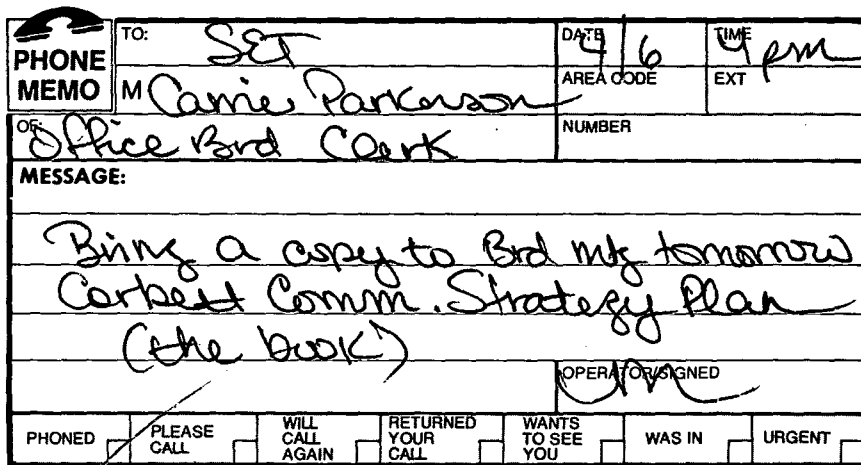 PHONE MEMO
TO: SET
DATE 4/6
TIME 4 pm
M Carrie Parkinson
AREA CODE
EXT
OF: Office Brd Clerk
NUMBER
MESSAGE:
Bring a copy to Brd mtg tomorrow
Corbett Comm. Strategy Plan
(the book)
OPERATOR/SIGNED
PHONED
PLEASE CALL
WILL CALL AGAIN
RETURNED YOUR CALL
WANTS TO SEE YOU
WAS IN
URGENT